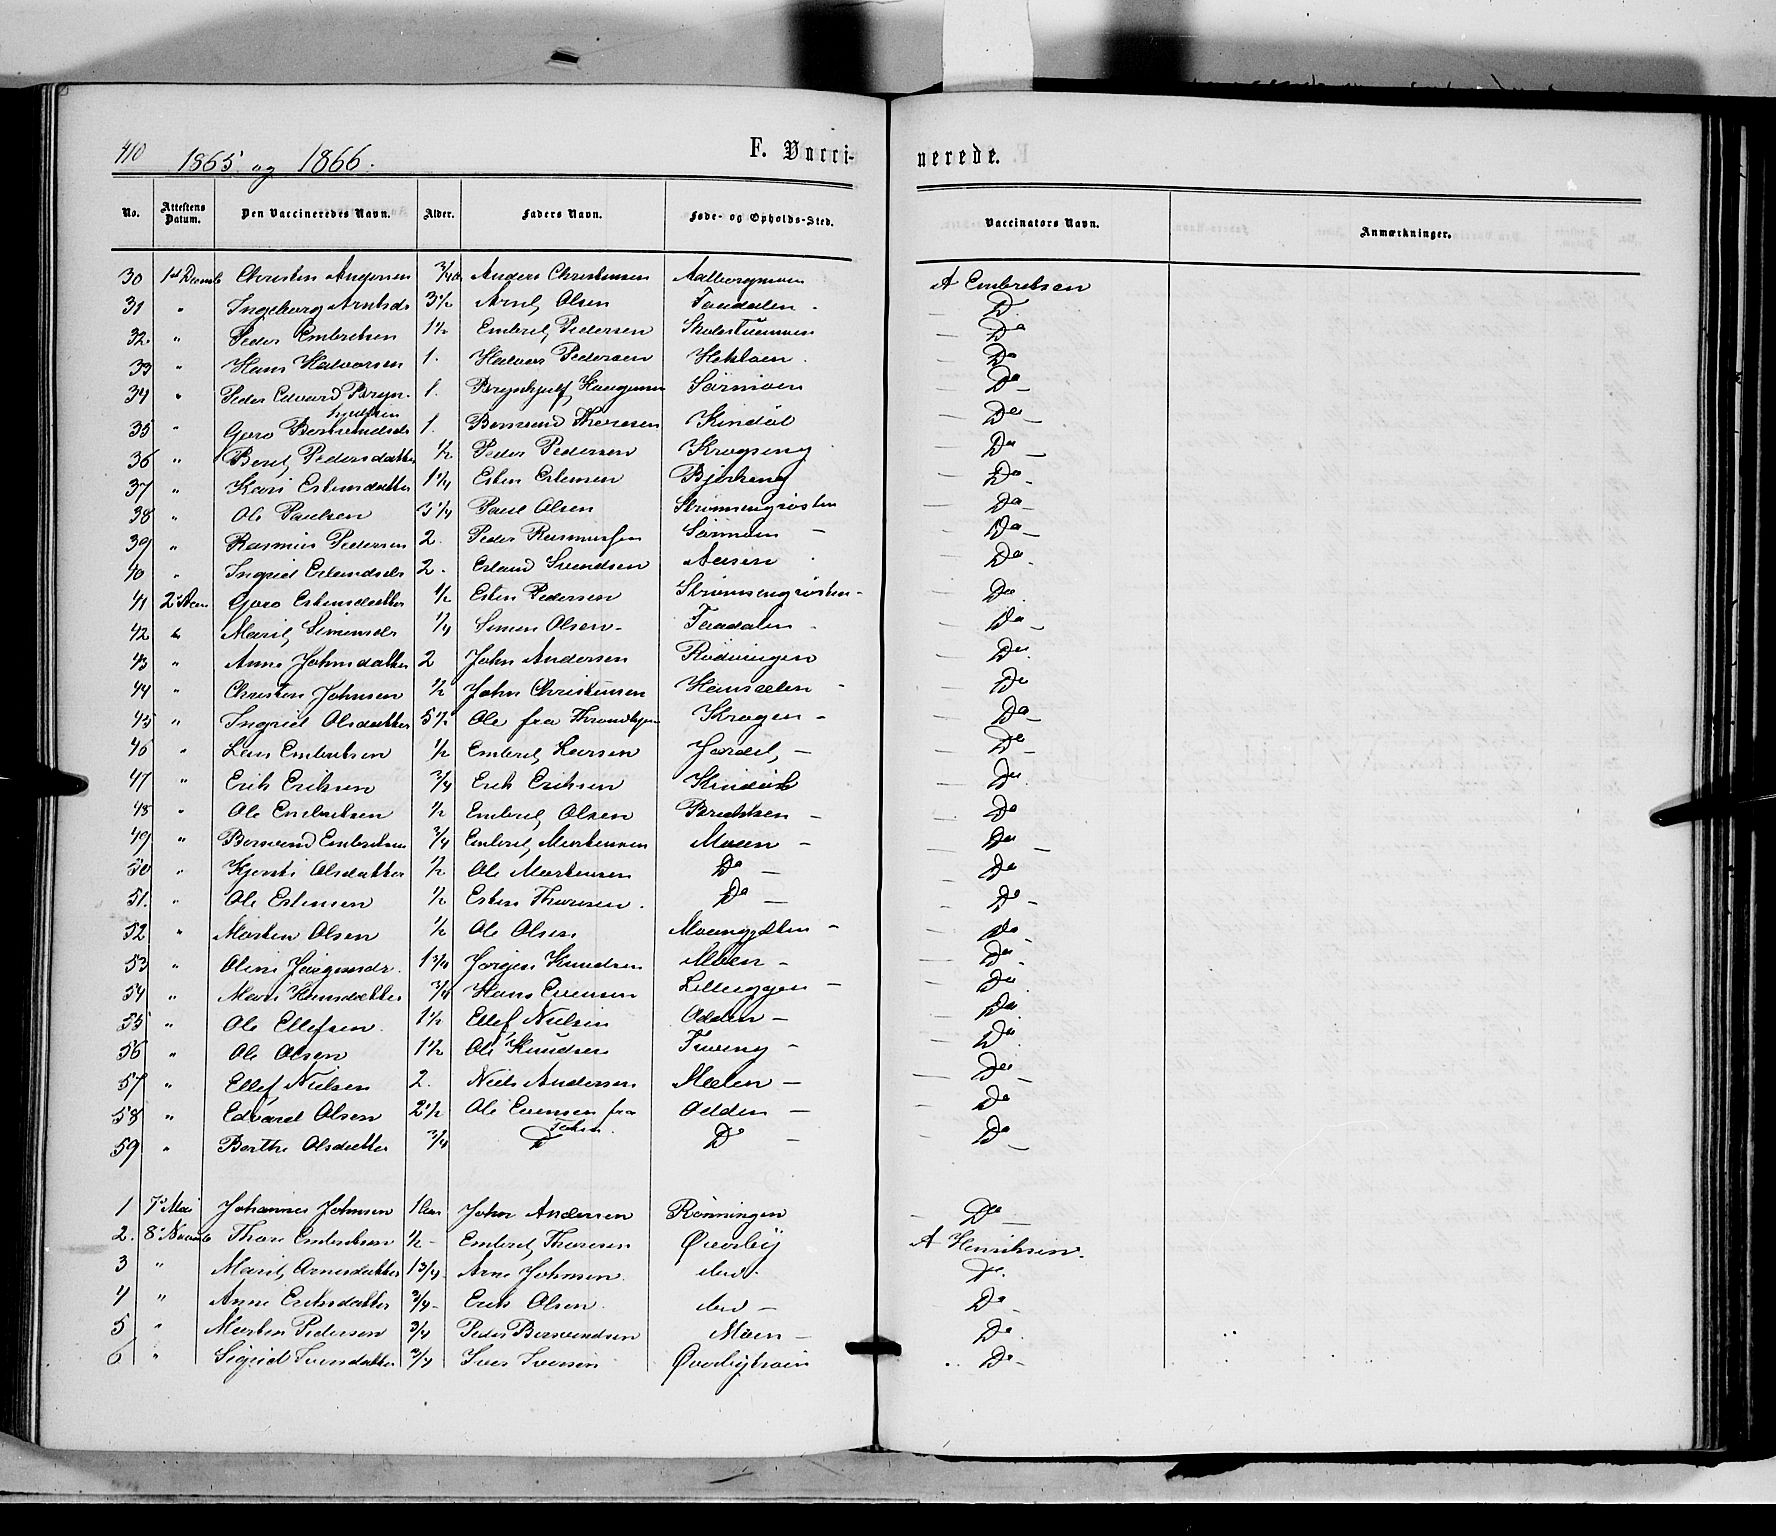 410 1865 og 1866. F. Vacci- nerede.
No. Attestens Datum. Den Vaccineredes Navn. Alder. Faders Navn. Føde- og Opholds-Sted. Vaccinators Navn. Anmærkninger.
30 1st Decemb Christen Andersen 3/4 Anders Christensen A Embretsen
31 " Ingeborg Arntsdr 3 1/2 Arnt Olsen Faadalen - Do
32. " Peder Embretsen 1 1/2 Embret Pedersen - Do
33 " Hans Halvorsen 1. Halvor Pedersen - Do
34 " Peder Edvard Bryn- 1. Brynhjulf Sørmoen - Do
hjulfsen
35 " Goro Bersvendsdr 1. Bersvend Thoresen Kindøl - Do
36 " Beret Pedersdatter 1/2 Peder Pedersen Krogseng - Do
37 " Kari Estensdatter 1 1/4 Esten Estensen Bjerkeng - Do
38 " Ole Paulsen 3 1/4 Paul Olsen Strømsengrøsten - Do
39 " Rasmus Pedersen 2. Peder Rasmussen Sørmoen - Do
40 " Ingrid Erlandsdr 2. Erland Svendsen Aasen - Do
41 2d Goro Estensdatter 1/2 Esten Pedersen Strømsengrøsten - Do
42 " Marit Simensdr 1/4 Simen Olsen - Faadalen - Do
43 " Anne Johnsdatter 2 John Andersen Rønningen - Do
44 " Christen Johnsen 1/2 John Christensen - Do
45 " Ingrid Olsdatter 5 1/2 Ole fra Throndhjem Krogen - Do
46 " Lars Embretsen 1/2 Embret Larsen - Do
47 " Erik Eriksen 3/4 Erik Eriksen Kindøl - Do
48 " Ole Embretsen 1/2 Embret Olsen Brekken - Do
49 " Bersvend Embretsen 3/4 Embret Mortensen Moen - Do
50 " Kjersti Olsdatter 1/2 Ole Mortensen Do - Do
51. " Ole Estensen 1/2 Esten Thoresen. Do - Do
52 " Morten Olsen 1/2 Ole Olsen - Do
53 " Oline Jørgensdr. 1 3/4 Jørgen Knudsen Moen - Do
54 " Mari Hansdatter 3/4 Hans Evensen Lilleeggen - Do
55 " Ole Ellefsen. 1 1/2 Ellef Nielsen Odden - Do
56 " Ole Olsen 1 1/2 Ole Knudsen - Do
57 " Ellef Nielsen 2. Niels Andersen Mælen - Do
58 " Edvard Olsen 2 1/2 Ole Evensen fra Odden - Do
59 " Berthe Olsdatter 3/4 Do Do - Do
1 7d Mai Johannes Johnsen 1 Aar John Andersen Rønningen - Do
2. 8d Novemb Thore Embretsen 1/2 - Embret Thoresen Øverby A Henriksen.
3 " Marit Arnesdatter 1 3/4 - Arne Johnsen. Do.
4 " Anne Eriksdatter 3/4 - Erik Olsen. Do -
5 " Morten Pedersen 3/4 Peder Bersvendsen Moen - Do
6 " Sigrid Iversdatter 3/4 Iver Iversen Do -